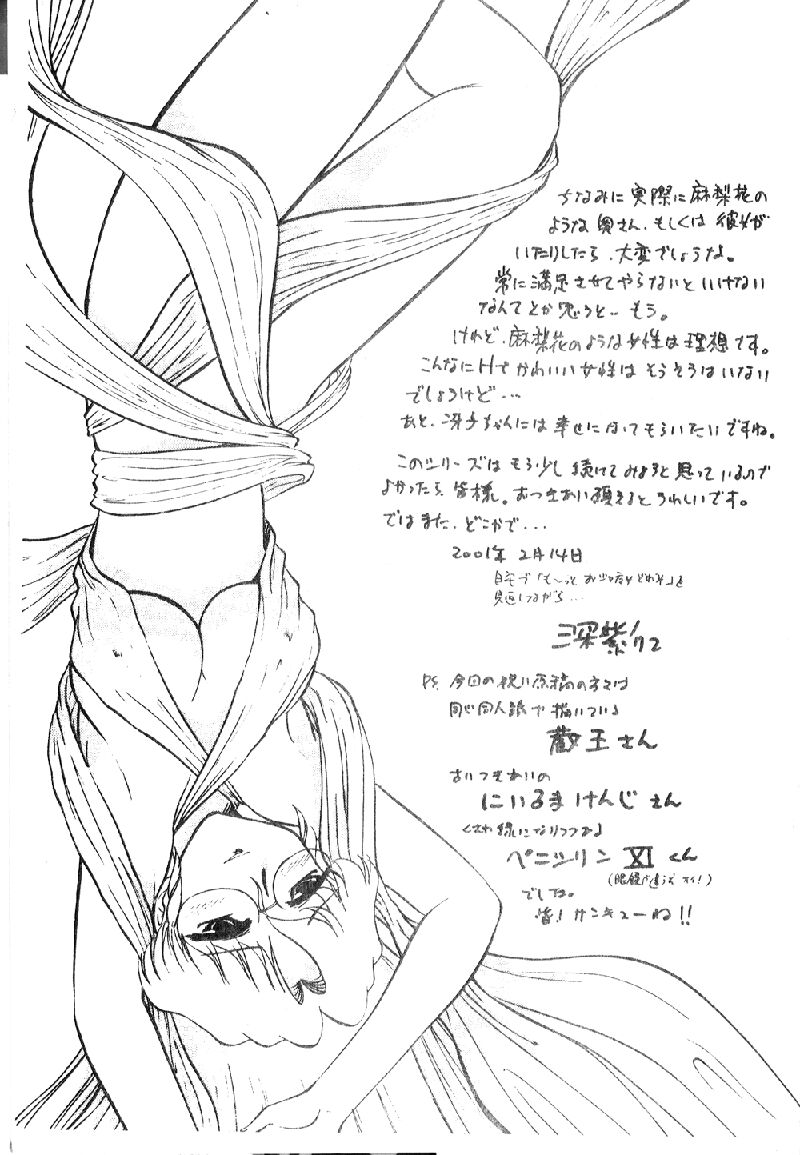 ちなみに実際に麻梨花の
ような奥さん、もしくは彼女が
いたりしたら、大変でしょうな。
常に満足させてやらないといけない
なんてとか思うと… もう。
けれど、麻梨花のような女性は理想です。
こんなにHでかわいい女性はもうそうはいない
でしょうけど…
あと、冴子ちゃんには幸せになってもらいたいですね。
このシリーズはもう少し続けてみようと思っているので
よかったら、皆様。おつきあい願えるとうれしいです。
ではまた、どこかで…
2001年2月14日
自宅で「も〜っと
見返しながら…
深紫
P.S. 今回の祝い原稿の方々は
同じ同人誌で描いている
蔵王さん
の
にいるまけんじさん
くされ縁になりつつある
ペニシリンXIくん
(眼鏡が違うぞ オイ!)
でした。
皆! サンキューね!!